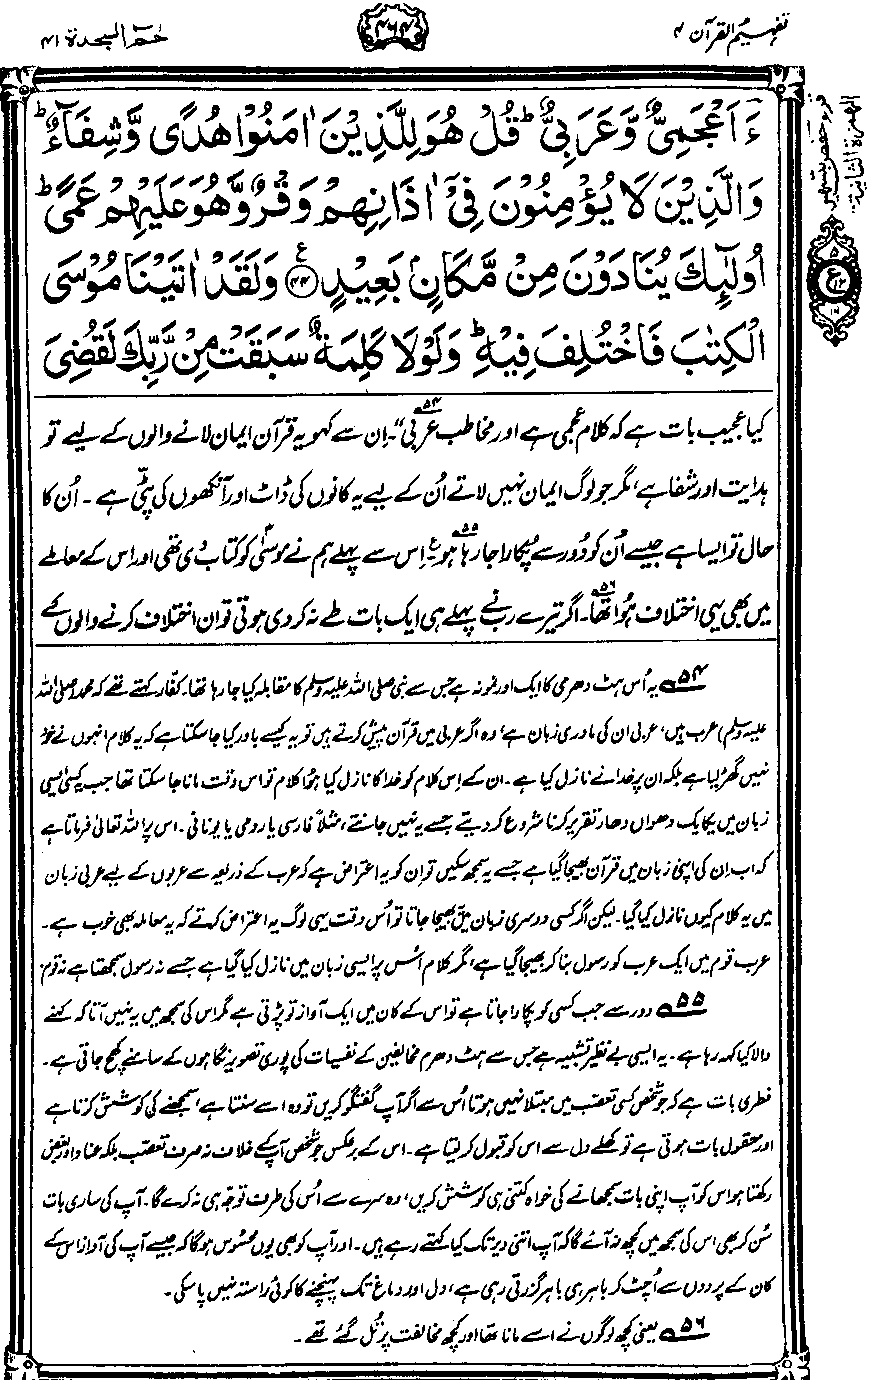 تفہیم القرآن ۴
۴۶۴
حٰمٓ السجدۃ ۴۱
ءَاَعۡجَمِیٌّ وَّعَرَبِیٌّ ؕ قُلۡ هُوَ لِلَّذِیۡنَ اٰمَنُوۡا هُدًی وَّشِفَآءٌ ؕ
وَالَّذِیۡنَ لَا یُؤۡمِنُوۡنَ فِیۡۤ اٰذَانِهِمۡ وَقۡرٌ وَّهُوَ عَلَیۡهِمۡ عَمًی ؕ
اُولٰٓئِكَ یُنَادَوۡنَ مِنۡ مَّكَانٍۭ بَعِیۡدٍ ﴿۴۴﴾ وَلَقَدۡ اٰتَیۡنَا مُوۡسَی
الۡكِتٰبَ فَاخۡتُلِفَ فِیۡهِ ؕ وَلَوۡلَا كَلِمَةٌ سَبَقَتۡ مِنۡ رَّبِّكَ لَقُضِیَ
کیا عجیب بات ہے کہ کلام عجمی ہے اور مخاطب عربی“۵۴۔ اِن سے کہو یہ قرآن ایمان لانے والوں کے لیے تو
ہدایت اور شفا ہے، مگر جو لوگ ایمان نہیں لاتے اُن کے لیے یہ کانوں کی ڈاٹ اور آنکھوں کی پٹّی ہے۔ اُن کا
حال تو ایسا ہے جیسے اُن کو دُور سے پکارا جا رہا ہو۵۵۔ ع اِس سے پہلے ہم نے موسیٰؑ کو کتاب دی تھی اور اس کے معاملے
میں بھی یہی اختلاف ہوا تھا۵۶۔ اگر تیرے رب نے پہلے ہی ایک بات طے نہ کر دی ہوتی تو ان اختلاف کرنے والوں کے
۵۴ یہ اُس ہٹ دھرمی کا ایک اور نمونہ ہے جس سے نبی صلی اللہ علیہ وسلم کا مقابلہ کیا جا رہا تھا۔ کفّار کہتے تھے کہ محمد صلی اللہ
علیہ وسلم) عرب ہیں، عربی ان کی مادری زبان ہے، وہ اگر عربی میں قرآن پیش کرتے ہیں تو یہ کیسے باور کیا جا سکتا ہے کہ یہ کلام انہوں نے خود
نہیں گھڑ لیا ہے بلکہ ان پر خدا نے نازل کیا ہے۔ ان کے اِس کلام کو خدا کا نازل کیا ہوا کلام تو اس وقت مانا جا سکتا تھا جب یہ کسی ایسی
زبان میں یکایک دھواں دھار تقریر کرنا شروع کر دیتے جسے یہ نہیں جانتے، مثلاً فارسی یا رومی یا یونانی۔ اس پر اللہ تعالیٰ فرماتا ہے
کہ اب اِن کی اپنی زبان میں قرآن بھیجا گیا ہے جسے یہ سمجھ سکیں تو ان کو یہ اعتراض ہے کہ عرب کے ذریعہ سے عربوں کے لیے عربی زبان
میں یہ کلام کیوں نازل کیا گیا۔ لیکن اگر کسی دوسری زبان میں یہ بھیجا جاتا تو اُس وقت یہی لوگ یہ اعتراض کرتے کہ یہ معاملہ بھی خوب ہے۔
عرب قوم میں ایک عرب کو رسول بنا کر بھیجا گیا ہے، مگر کلام اُس پر ایسی زبان میں نازل کیا گیا ہے جسے نہ رسول سمجھتا ہے نہ قوم
۵۵ دور سے جب کسی کو پکارا جاتا ہے تو اس کے کان میں ایک آواز تو پڑتی ہے مگر اس کی سمجھ میں یہ نہیں آتا کہ کہنے
والا کیا کہہ رہا ہے۔ یہ ایسی بے نظیر تشبیہ ہے جس سے ہٹ دھرم مخالفین کے نفسیات کی پوری تصویر نگاہوں کے سامنے کھچ جاتی ہے۔
فطری بات ہے کہ جو شخص کسی تعصب میں مبتلا نہیں ہوتا اُس سے اگر آپ گفتگو کریں تو وہ اسے سنتا ہے، سمجھنے کی کوشش کرتا ہے
اور معقول بات ہوتی ہے تو کھلے دل سے اس کو قبول کر لیتا ہے۔ اس کے برعکس جو شخص آپ کے خلاف نہ صرف تعصب بلکہ عناد اور بغض
رکھتا ہو اس کو آپ اپنی بات سمجھانے کی خواہ کتنی ہی کوشش کریں، وہ سرے سے اُس کی طرف توجہ ہی نہ کرے گا۔ آپ کی ساری بات
سُن کر بھی اس کی سمجھ میں کچھ نہ آئے گا کہ آپ اتنی دیر تک کیا کہتے رہے ہیں۔ اور آپ کو بھی یوں محسوس ہوگا کہ جیسے آپ کی آواز اس کے
کان کے پردوں سے اُچٹ کر باہر ہی باہر گزرتی رہی ہے، دل اور دماغ تک پہنچنے کا کوئی راستہ نہیں پا سکی۔
۵۶ یعنی کچھ لوگوں نے اسے مانا تھا اور کچھ مخالفت پر تُل گئے تھے۔
الهمزة الثانية
ع
۵